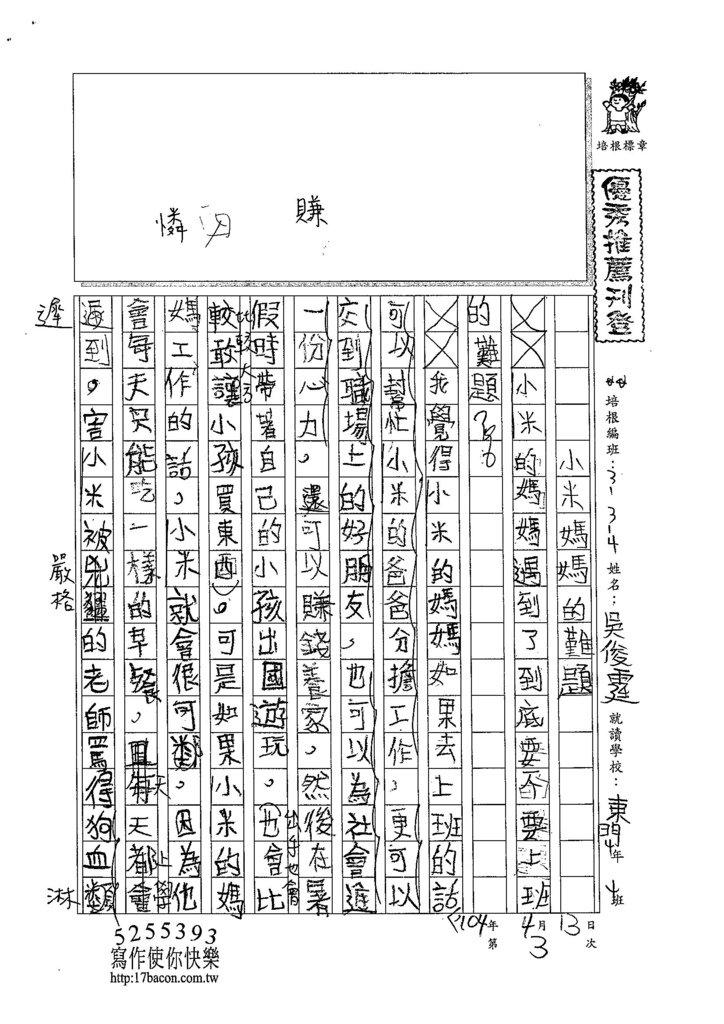 培根標章
優秀推薦刊登
培根編班：313-14 姓名：吳俊霆 就讀學校：東門 4年 4班
104年 4月 13日 第 3 次
賺
憐
小米媽媽的難題
小米的媽媽遇到了到底要不要上班
的難題？
我覺得小米的媽媽如果去上班的話，
可以幫忙小米的爸爸分擔工作。更可以
交到職場上的好朋友，也可以為社會進
一份心力，還可以賺錢養家。然後在暑
假時帶著自己的小孩出國遊玩。也會比
出手也會
比較大方
較敢讓小孩買東西。可是如果小米的媽
媽工作的話，小米就會很可憐。因為他
會每天只能吃一樣的早餐，且每天都會
天上學
遲到。害小米被兇猛的老師罵得狗血
遲
嚴格
淋
5255393
寫作使你快樂
http://17bacon.com.tw